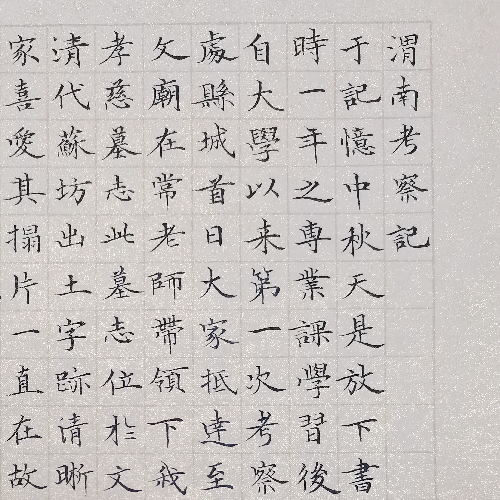 渭南考察記
于記憶中秋天是放下書
時一年之專業課學習後
自大學以来第一次考察
處縣城首日大家抵達至
文廟在常老師帶領下我
孝慈墓志此墓志位於文
清代蘇坊出土字跡清晰
家喜愛其搨片一直在故